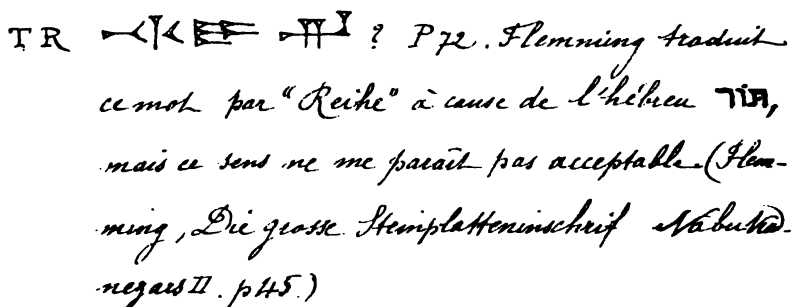 TR ? P72. Flemming traduit
ce mot par "Reihe" à cause de l'hébreu תור,
mais ce sens ne me paraît pas acceptable. (Flem-
ming, Die grosse Steinplatteninschrif Nabukad-
negars II. p45.)